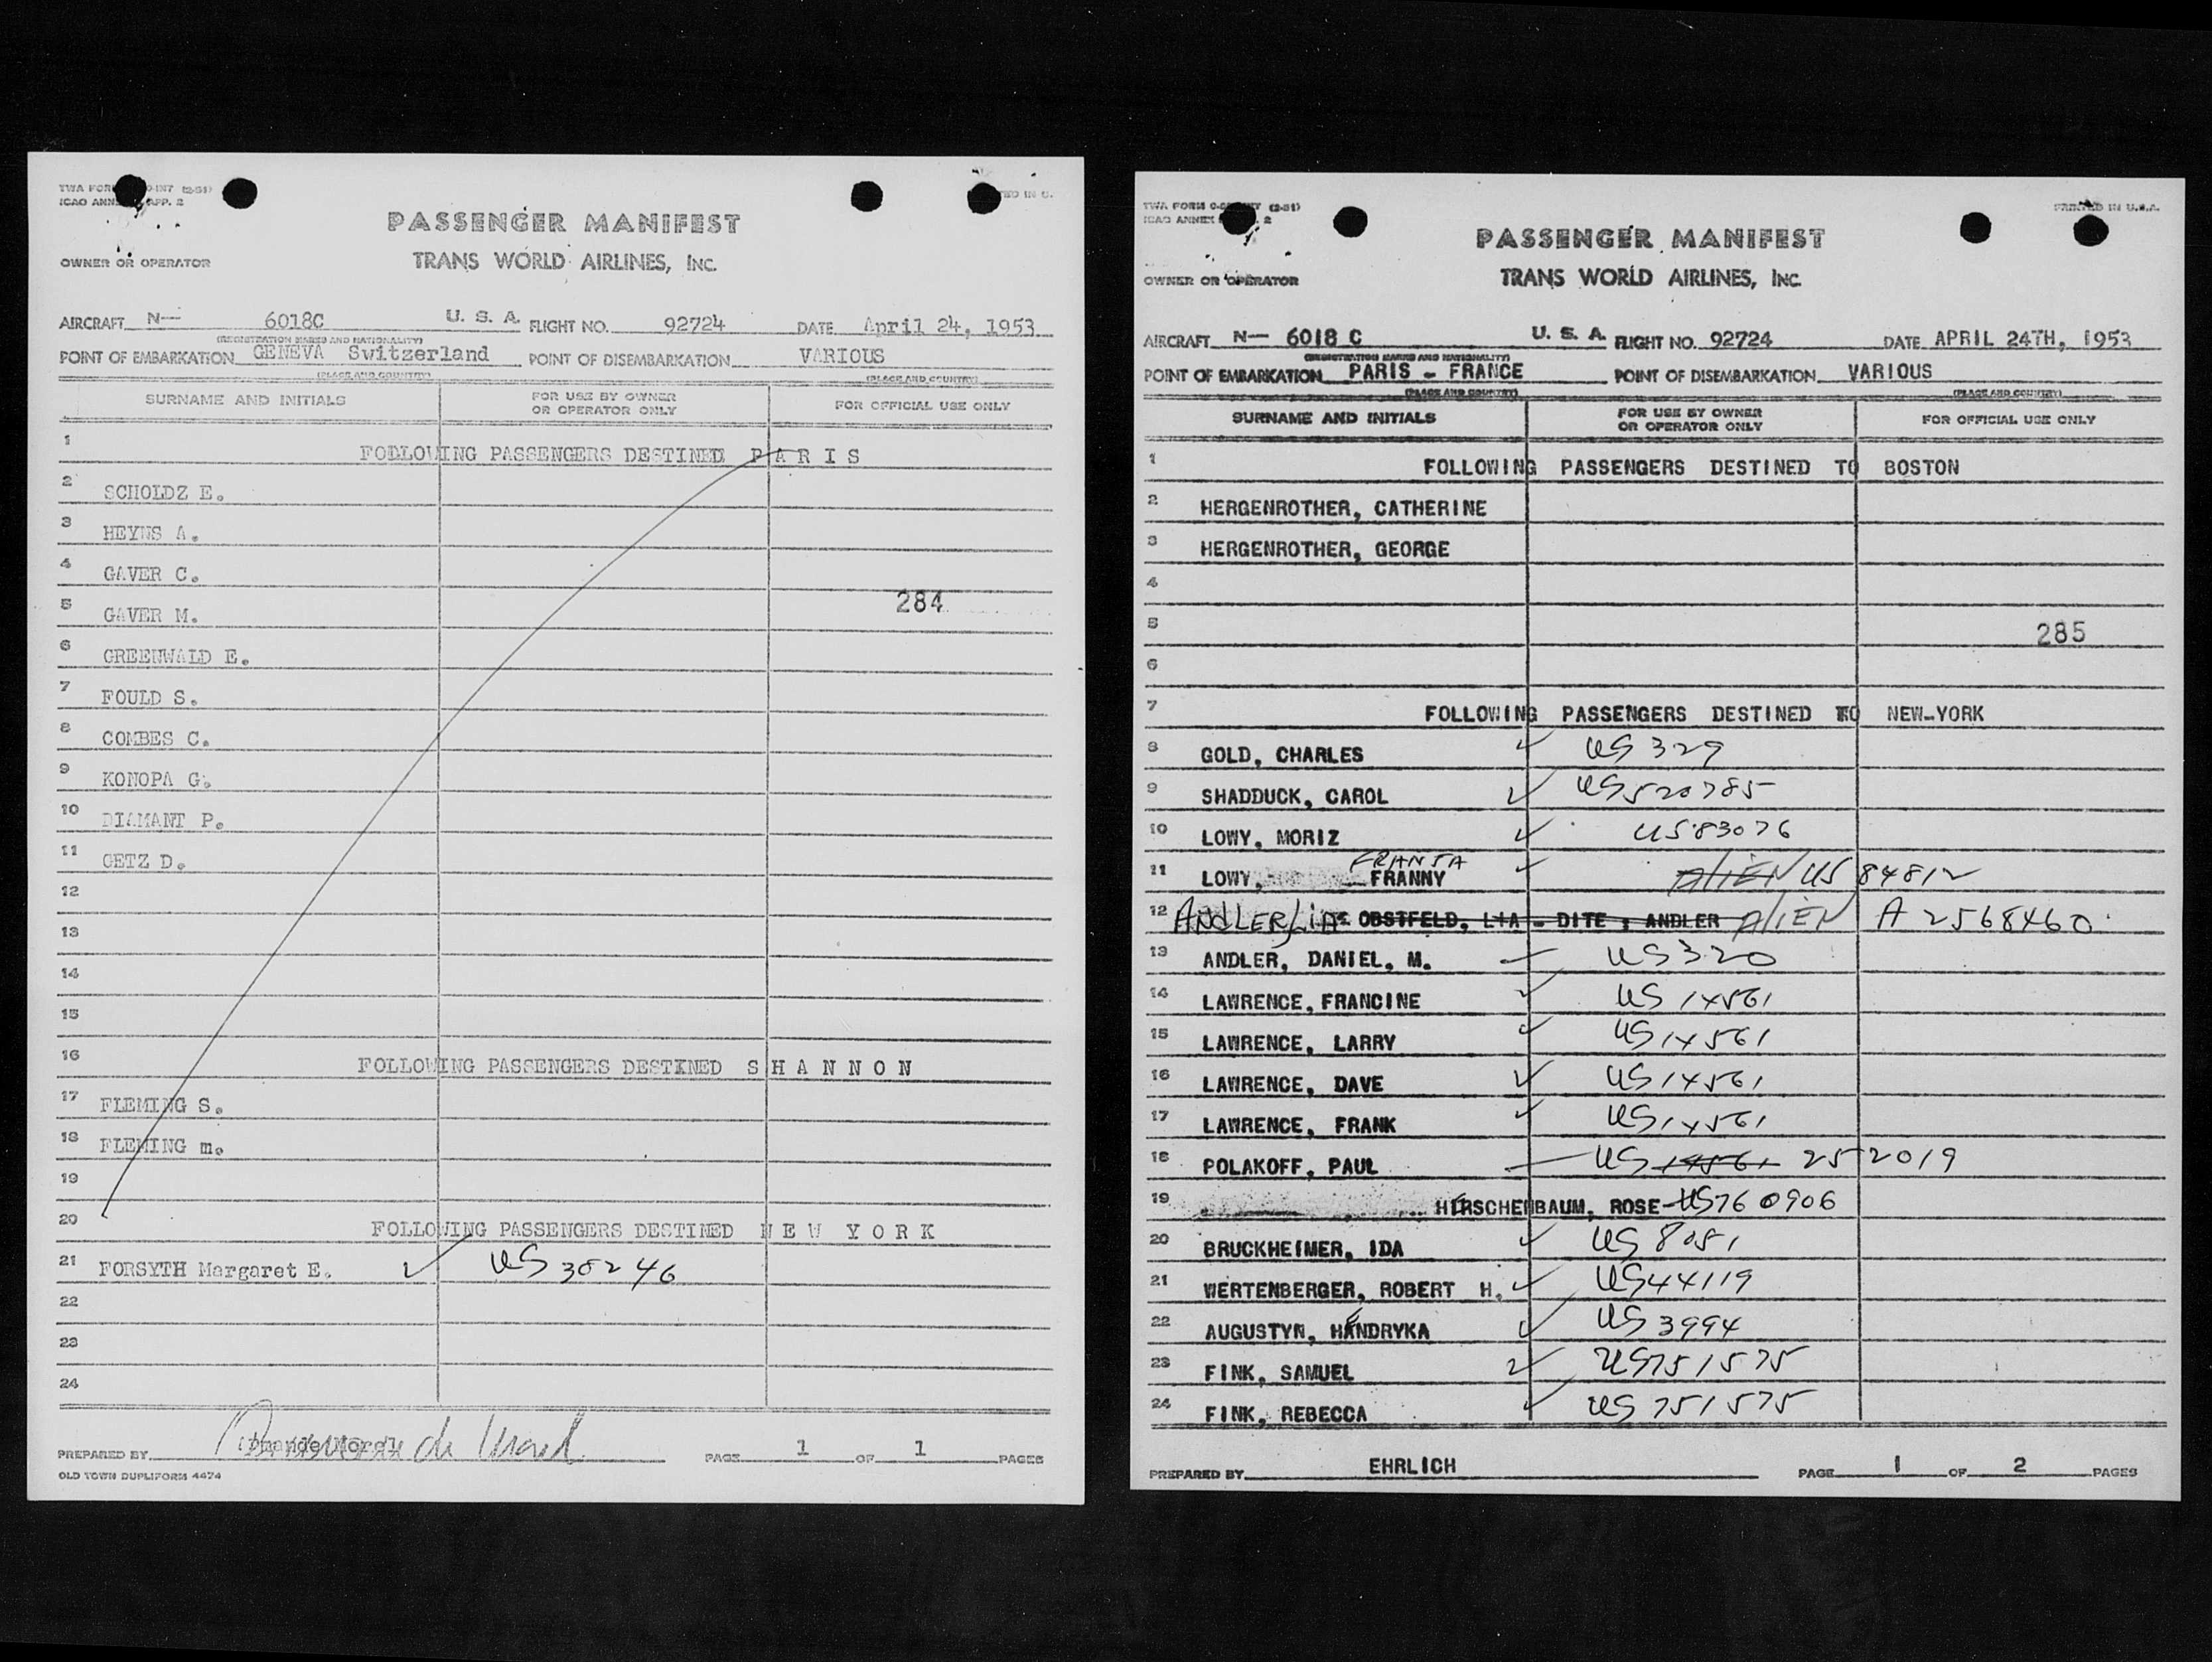 PASSENGER MANIFEST
TRANS WORLD AIRLINES, INC.
OWNER OR OPERATOR
AIRCRAFT N— 6018C U. S. A. FLIGHT NO. 92724 DATE April 24, 1953
(REGISTRATION MARKS AND NATIONALITY)
POINT OF EMBARKATION GENEVA Switzerland POINT OF DISEMBARKATION VARIOUS
(PLACE AND COUNTRY) (PLACE AND COUNTRY)
SURNAME AND INITIALS FOR USE BY OWNER OR OPERATOR ONLY FOR OFFICIAL USE ONLY
1 FOLLOWING PASSENGERS DESTINED P A R I S
2 SCHOLDZ E.
3 HEYNS A.
4 GAVER C.
5 GAVER M. 284
6 GREENWALD E.
7 FOULD S.
8 COMBES C.
9 KONOPA G.
10 DIAMANT P.
11 GETZ D.
12
13
14
15
16 FOLLOWING PASSENGERS DESTINED S H A N N O N
17 FLEMING S.
18 FLEMING m.
19
20 FOLLOWING PASSENGERS DESTINED N E W Y O R K
21 FORSYTH Margaret E. ✓ US 38246
22
23
24
PREPARED BY PAGE 1 OF 1 PAGES
OLD TOWN DUPLIFORM 4474
PRINTED IN U.S.A.
PASSENGER MANIFEST
TRANS WORLD AIRLINES, INC.
OWNER OR OPERATOR
AIRCRAFT N— 6018 C U. S. A. FLIGHT NO. 92724 DATE APRIL 24TH, 1953
(REGISTRATION MARKS AND NATIONALITY)
POINT OF EMBARKATION PARIS - FRANCE POINT OF DISEMBARKATION VARIOUS
(PLACE AND COUNTRY) (PLACE AND COUNTRY)
SURNAME AND INITIALS FOR USE BY OWNER OR OPERATOR ONLY FOR OFFICIAL USE ONLY
1 FOLLOWING PASSENGERS DESTINED TO BOSTON
2 HERGENROTHER, CATHERINE
3 HERGENROTHER, GEORGE
4
5 285
6
7 FOLLOWING PASSENGERS DESTINED TO NEW-YORK
8 GOLD, CHARLES ✓ US 329
9 SHADDUCK, CAROL ✓ US 520785
10 LOWY, MORIZ ✓ US 83076
FRANJA
11 LOWY, FRANNY ✓ ALIEN US 84812
12 ANDLER, LIA OBSTFELD, LIA - DITE : ANDLER ALIEN A 2568460
13 ANDLER, DANIEL, M. — US 320
14 LAWRENCE, FRANCINE ✓ US 14561
15 LAWRENCE, LARRY ✓ US 14561
16 LAWRENCE, DAVE ✓ US 14561
17 LAWRENCE, FRANK ✓ US 14561
18 POLAKOFF, PAUL — US 14561 252019
19 HIRSCHENBAUM, ROSE - US760906
20 BRUCKHEIMER, IDA ✓ US 8051
21 WERTENBERGER, ROBERT H. ✓ US44119
22 AUGUSTYN, HENDRYKA ✓ US 3994
23 FINK, SAMUEL ✓ US751575
24 FINK, REBECCA ✓ US 751575
PREPARED BY EHRLICH PAGE 1 OF 2 PAGES